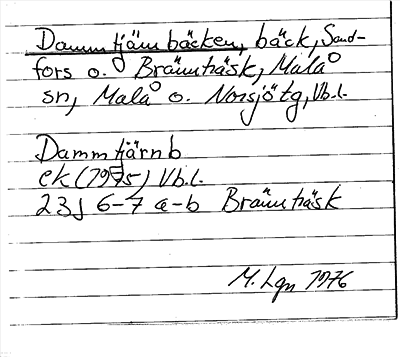 Dammtjärnbäcken, bäck, Sand-
fors o. Brännträsk, Malå
sn, Malå o. Norsjö tg, Vb.l.
Dammtjärnb
ek (1975) Vb.l.
23J 6-7 a-b Brännträsk
M. Lgn 1976